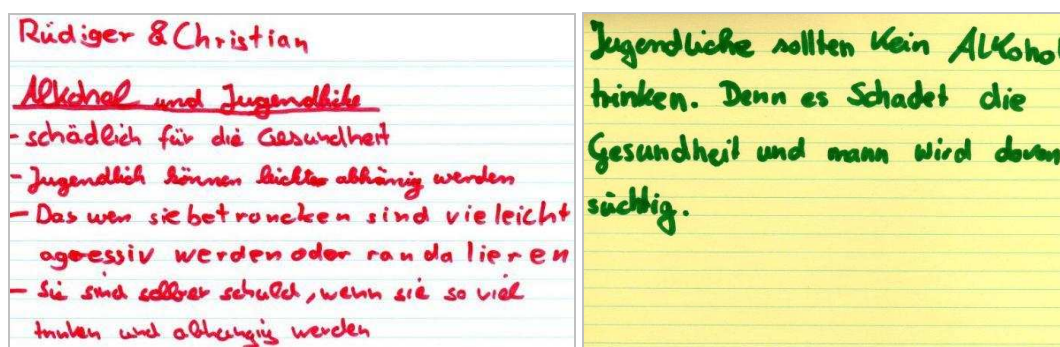 Rüdiger & Christian
Alkohol und Jugendliche
- schädlich für die Gesundheit
- Jugendlich können leichter abhänig werden
- Das wen sie betruncken sind vieleicht
agressiv werden oder randalieren
- Sie sind selber schuld, wenn sie so viel
trinken und abhängig werden
Jugendliche sollten kein Alkohol
trinken. Denn es Schadet die
Gesundheit und mann wird davon
süchtig.